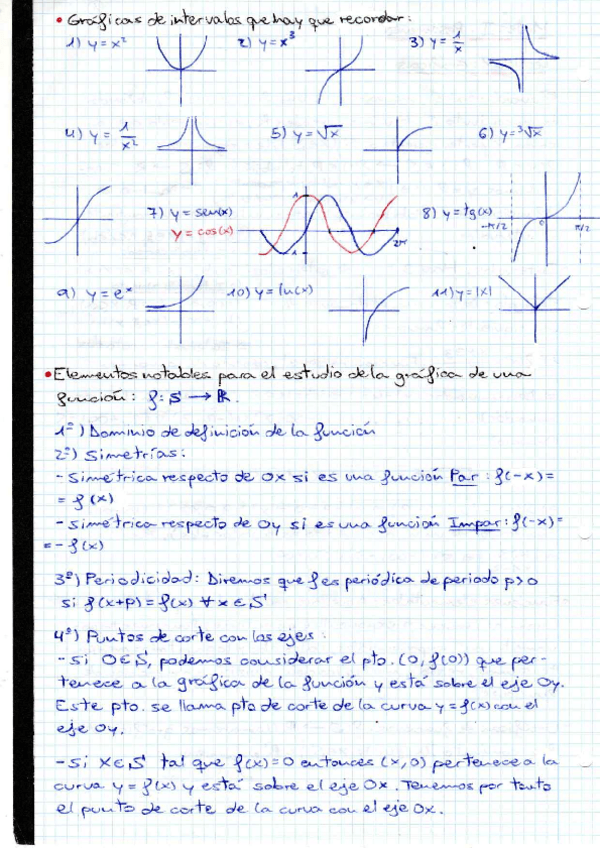 • Gráficas de intervalos que hay que recordar:
1) y = x² 2) y = x³ 3) y = 1/x
4) y = 1/x² 5) y = √x 6) y = ³√x
7) y = sen(x) 8) y = tg(x)
y = cos(x)
1
-1
2π
-π/2 0 π/2
9) y = eˣ 10) y = ln(x) 11) y = |x|
• Elementos notables para el estudio de la gráfica de una
función: f: S → ℝ.
1º) Dominio de definición de la función
2º) Simetrías:
- Simétrica respecto de Ox si es una función Par: f(-x)=
= f(x)
- Simétrica respecto de Oy si es una función Impar: f(-x)=
= - f(x)
3º) Periodicidad: Diremos que f es periódica de periodo p>0
si f(x+p) = f(x) ∀ x ∈ S
4º) Puntos de corte con los ejes:
- Si 0 ∈ S, podemos considerar el pto. (0, f(0)) que per-
tenece a la gráfica de la función y está sobre el eje Oy.
Este pto. se llama pto de corte de la curva y = f(x) con el
eje Oy.
- Si x ∈ S tal que f(x)=0 entonces (x,0) pertenece a la
curva y = f(x) y está sobre el eje Ox. Tenemos por tanto
el punto de corte de la curva con el eje Ox.